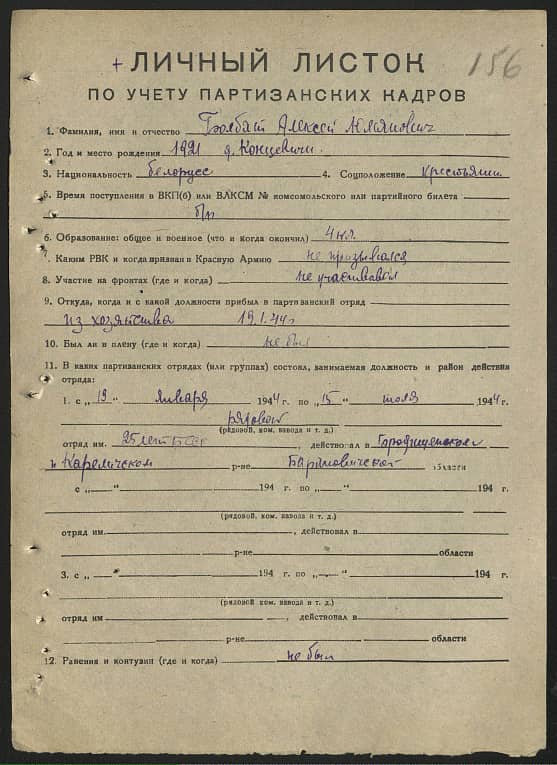 156
+ ЛИЧНЫЙ ЛИСТОК
ПО УЧЕТУ ПАРТИЗАНСКИХ КАДРОВ
1. Фамилия, имя и отчество Алексей
2. Год и место рождения 1921 д. Концевичи
3. Национальность белорусс 4. Соцположение крестьянин
5. Время поступления в ВКП(б) или ВЛКСМ № комсомольского или партийного билета
б/п
6. Образование: общее и военное (что и когда окончил) 4 кл.
7. Каким РВК и когда призван в Красную Армию не призывался
8. Участие на фронтах (где и когда) не участвовал
9. Откуда, когда и с какой должности прибыл в партизанский отряд
из хозяйства 19.1.44г
10. Был ли в плену (где и когда) не был
11. В каких партизанских отрядах (или группах) состоял, занимаемая должность и район действия
отряда:
1. с „ 19 “ января 1944 г. по „ 15 “ июля 1944 г.
рядовой
(рядовой, ком. взвода и т. д.)
отряд им. 25 лет БССР, действовал в Городищенском
и Кареличском р-не Барановичской области
с „ “ 194 г. по „ “ 194 г.
(рядовой, ком. взвода и т. д.)
отряд им. , действовал в
р-не области
3. с „ “ 194 г. по „ “ 194 г.
(рядовой ком. взвода и т. д.)
отряд им , действовал в
р-не области
12. Ранения и контузии (где и когда) не был